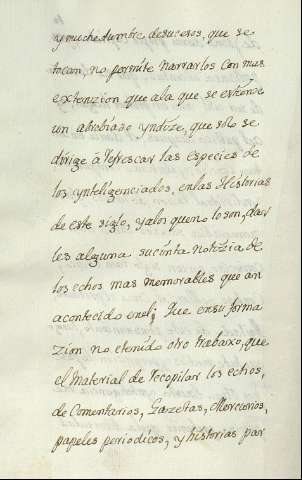 y muchedumbre de sucesos, que se
tocan, no permite narrarlos con mas
extenzion que ala que se estiende
un abrebiado yndize, que solo se
dirige à refrescar las especies de
los ynteligenciados, enlas Historias
de este siglo, yalos queno loson, dar
les alguna sucinta notizia de
los echos mas memorables que an
acontecido enel; Que ensu forma
zion no etenido otro trabaxo, que
el material de recopilar los echos,
de Comentarios, Gazettas, Mercurios,
papeles periodicos, y historias par